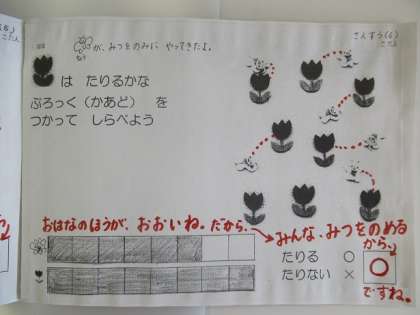 が、みつをのみに やってきたよ。
さんすう(6)
こたえ
は たりるかな
ぶろっく(かあど) を
つかって しらべよう
おはなのほうが、おおいね。だから、
みんな、みつをのめる
から、
たりる ○
たりない ×
○
ですね。